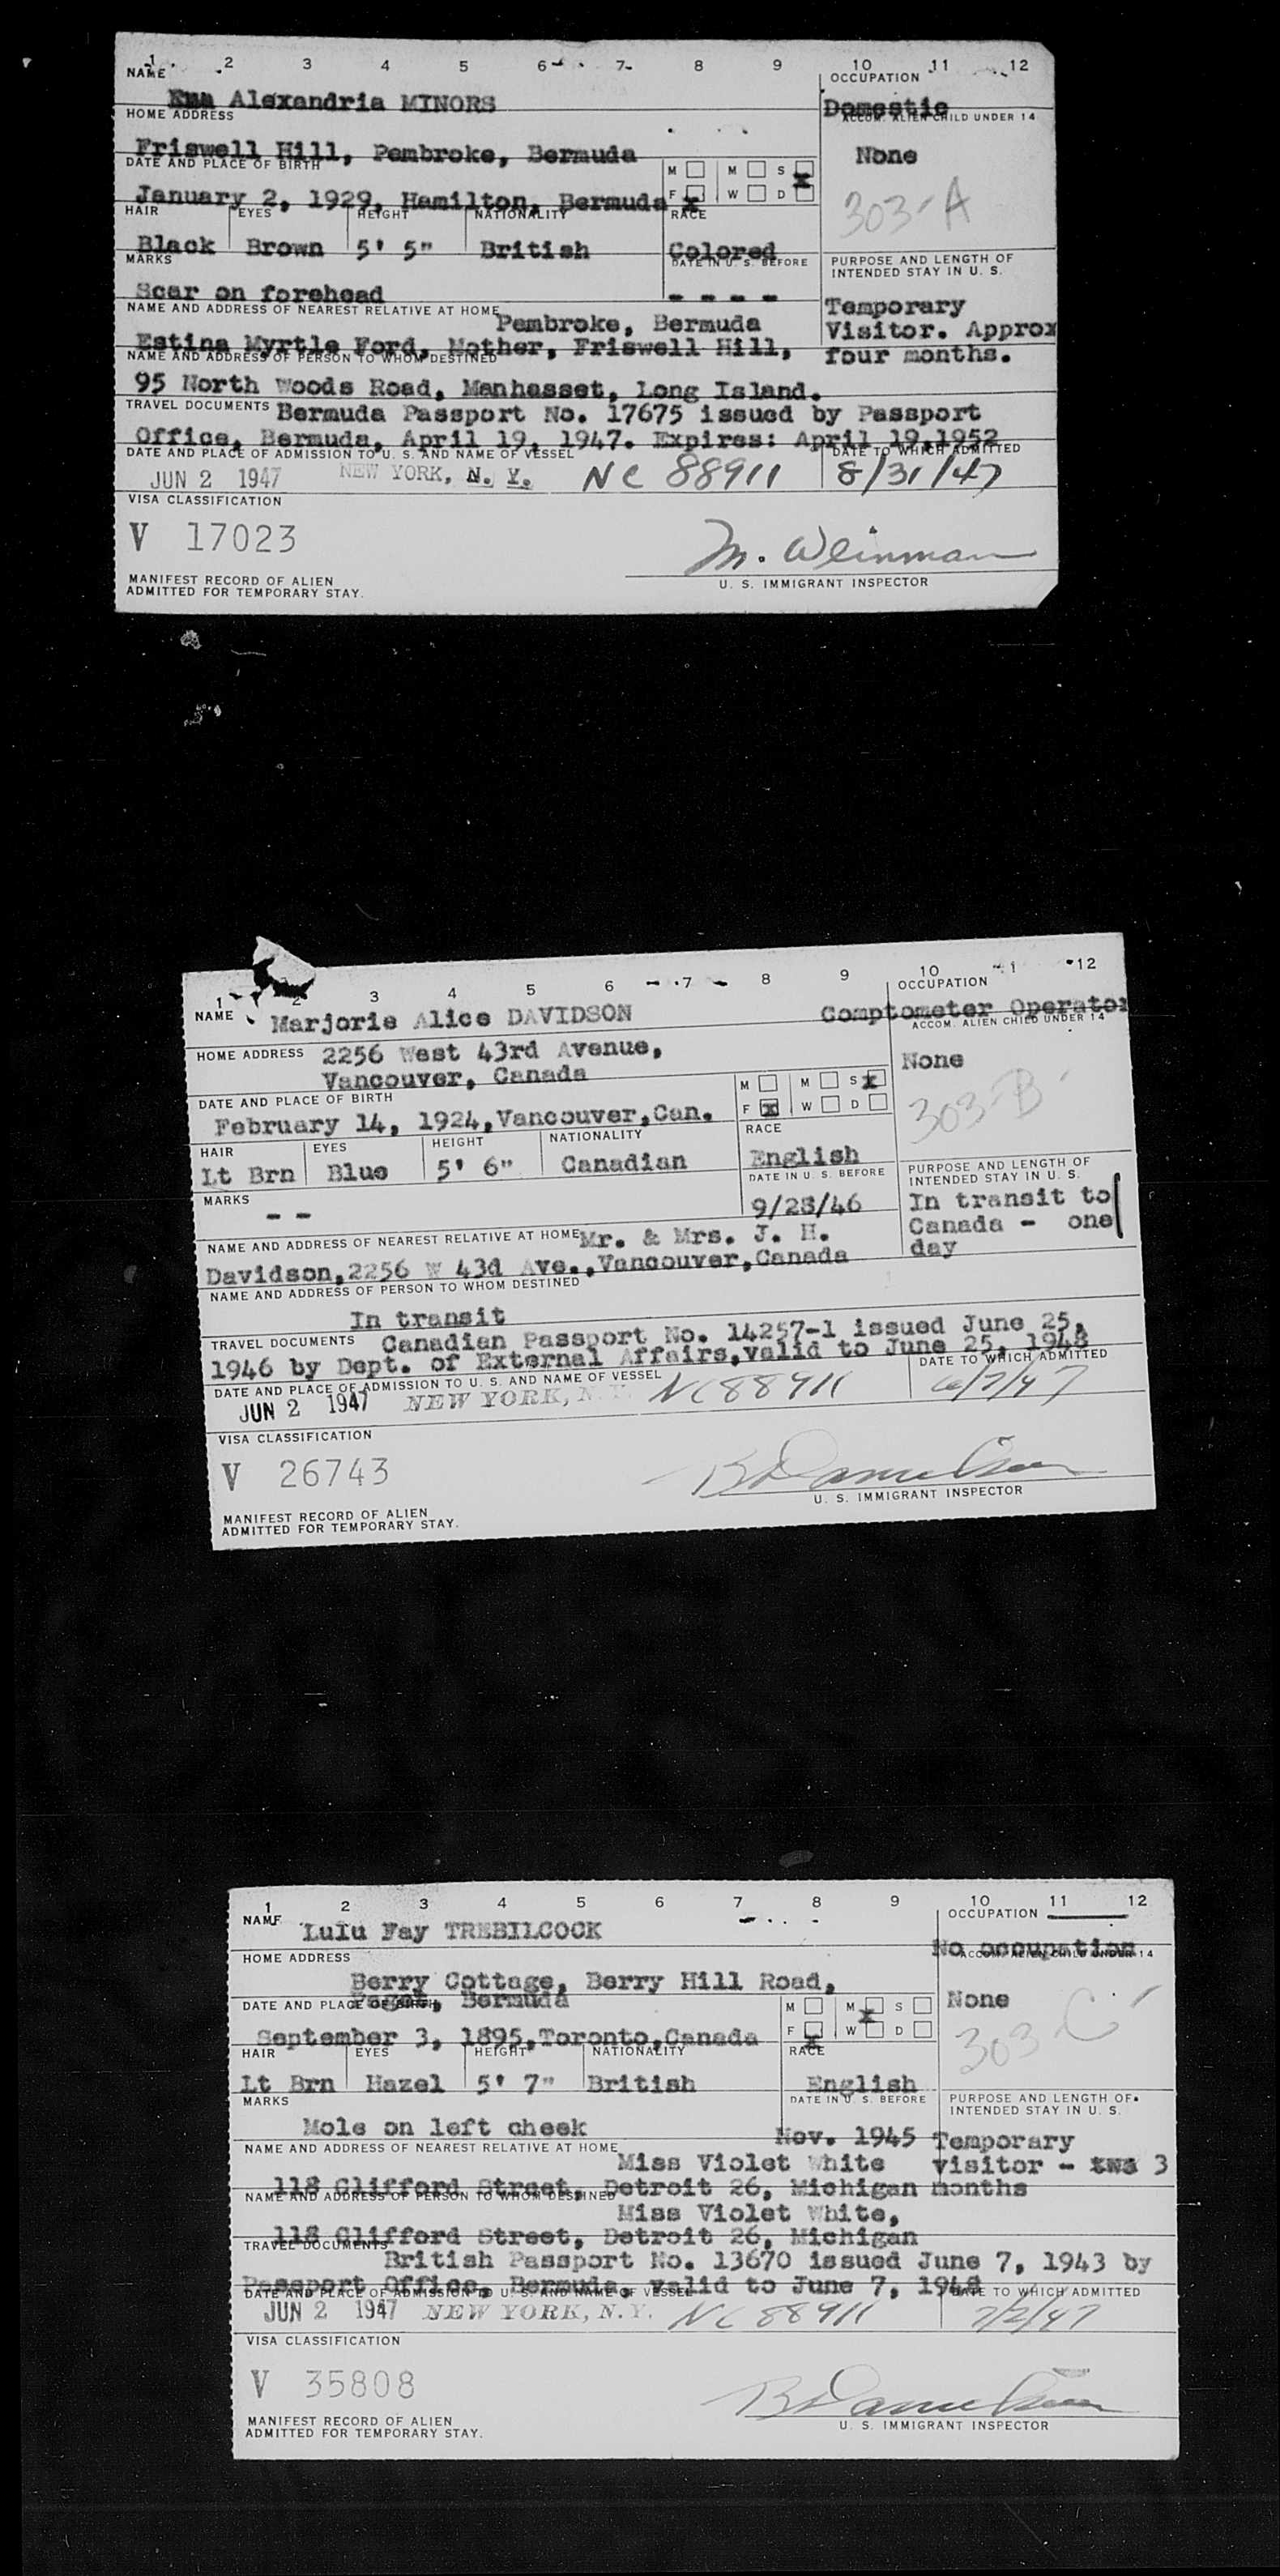 1 2 3 4 5 6 7 8 9 10 11 12
NAME OCCUPATION
Alexandria MINORS Domestic
HOME ADDRESS ACCOM. ALIEN CHILD UNDER 14
Friswell Hill, Pembroke, Bermuda None
DATE AND PLACE OF BIRTH M M S
January 2, 1929, Hamilton, Bermuda F x W D x
303-A
HAIR EYES HEIGHT NATIONALITY RACE
Black Brown 5' 5" British Colored
MARKS DATE IN U. S. BEFORE PURPOSE AND LENGTH OF
INTENDED STAY IN U. S.
Scar on forehead - - - -
NAME AND ADDRESS OF NEAREST RELATIVE AT HOME Temporary
Pembroke, Bermuda Visitor. Approx
Estina Myrtle Ford, Mother, Friswell Hill, four months.
NAME AND ADDRESS OF PERSON TO WHOM DESTINED
95 North Woods Road, Manhasset, Long Island.
TRAVEL DOCUMENTS Bermuda Passport No. 17675 issued by Passport
Office, Bermuda, April 19, 1947. Expires: April 19,1952
DATE AND PLACE OF ADMISSION TO U. S. AND NAME OF VESSEL DATE TO WHICH ADMITTED
JUN 2 1947 NEW YORK, N. Y. NC 88911 8/31/47
VISA CLASSIFICATION
V 17023
M. Weinman
MANIFEST RECORD OF ALIEN U. S. IMMIGRANT INSPECTOR
ADMITTED FOR TEMPORARY STAY.
1 2 3 4 5 6 7 8 9 10 1 12
NAME OCCUPATION
Marjorie Alice DAVIDSON Comptometer Operator
ACCOM. ALIEN CHILD UNDER 14
HOME ADDRESS 2256 West 43rd Avenue, None
Vancouver, Canada
DATE AND PLACE OF BIRTH M M S x
February 14, 1924,Vancouver,Can. F x W D
303-B
HAIR EYES HEIGHT NATIONALITY RACE
Lt Brn Blue 5' 6" Canadian English
MARKS DATE IN U. S. BEFORE PURPOSE AND LENGTH OF
INTENDED STAY IN U. S.
- - 9/28/46 In transit to
NAME AND ADDRESS OF NEAREST RELATIVE AT HOME Mr. & Mrs. J. H. Canada - one
Davidson,2256 W 43d Ave.,Vancouver,Canada day
NAME AND ADDRESS OF PERSON TO WHOM DESTINED
In transit
TRAVEL DOCUMENTS Canadian Passport No. 14257-1 issued June 25,
1946 by Dept. of External Affairs,valid to June 25, 1948
DATE AND PLACE OF ADMISSION TO U. S. AND NAME OF VESSEL DATE TO WHICH ADMITTED
JUN 2 1947 NEW YORK, N.Y. NC88911 6/7/47
VISA CLASSIFICATION
V 26743
U. S. IMMIGRANT INSPECTOR
MANIFEST RECORD OF ALIEN
ADMITTED FOR TEMPORARY STAY.
1 2 3 4 5 6 7 8 9 10 11 12
NAME OCCUPATION
Lulu Fay TREBILCOCK No occupation
HOME ADDRESS ACCOM. ALIEN CHILD UNDER 14
Berry Cottage, Berry Hill Road,
Paget, Bermuda None
DATE AND PLACE OF BIRTH M M x S
September 3, 1895,Toronto,Canada F x W D
303-C
HAIR EYES HEIGHT NATIONALITY RACE
Lt Brn Hazel 5' 7" British English
MARKS DATE IN U. S. BEFORE PURPOSE AND LENGTH OF
INTENDED STAY IN U. S.
Mole on left cheek Nov. 1945 Temporary
NAME AND ADDRESS OF NEAREST RELATIVE AT HOME
Miss Violet White visitor - two 3
118 Clifford Street, Detroit 26, Michigan months
NAME AND ADDRESS OF PERSON TO WHOM DESTINED
Miss Violet White,
118 Clifford Street, Detroit 26, Michigan
TRAVEL DOCUMENTS
British Passport No. 13670 issued June 7, 1943 by
Passport Office, Bermuda, valid to June 7, 1948
DATE AND PLACE OF ADMISSION TO U. S. AND NAME OF VESSEL DATE TO WHICH ADMITTED
JUN 2 1947 NEW YORK, N.Y. NC 88911 7/2/47
VISA CLASSIFICATION
V 35808
MANIFEST RECORD OF ALIEN U. S. IMMIGRANT INSPECTOR
ADMITTED FOR TEMPORARY STAY.